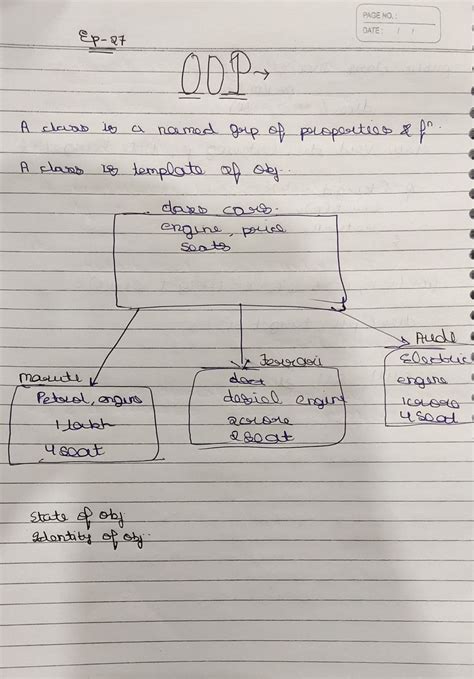 PAGE NO.:
DATE: / /
Ep-27
OOP→
A class is a named grp of properties & fⁿ.
A class is template of obj.
class cars.
engine, price
seats
Audi
Electric
engine
1crore
4 seat
Ferrari
desial engine
2crore
2 seat
maruti
Petrol, engine
1 lakh
4 seat
State of obj
Identity of obj.